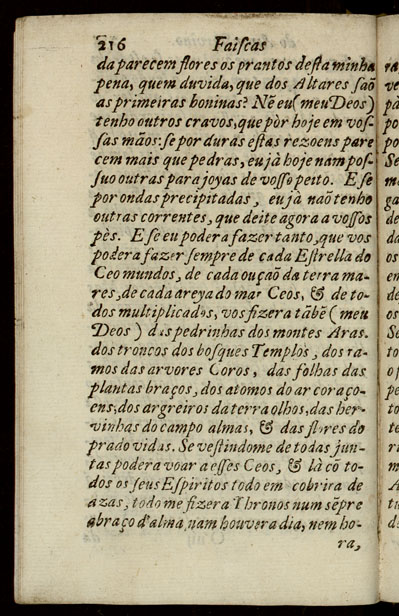 216 Faiſcas
da parecem flores os prantos deſta minha
pena, quem duvida, que dos Altares ſaõ
as primeiras boninas? Nẽ eu (meu Deos)
tenho outros cravos, que pòr hoje em voſ-
ſas mãos: ſe por duras eſtas rezoens pare
cem mais que pedras, eu jà hoje nam poſ-
ſuo outras para joyas de voſſo peito. E ſe
por ondas precipitadas, eu jà naõ tenho
outras correntes, que deite agora a voſſos
pès. E ſe eu podera fazer tanto, que vos
podera fazer ſempre de cada Eſtrella do
Ceo mundos, de cada ouçaõ da terra ma-
res, de cada areya do mar Ceos, & de to-
dos multiplicados, vos fizera tãbẽ (meu
Deos) das pedrinhas dos montes Aras.
dos troncos dos boſques Templos, dos ra-
mos das arvores Coros, das folhas das
plantas braços, dos atomos do ar coraço-
ens, dos argreiros da terra olhos, das her-
vinhas do campo almas, & das flores do
prado vidas. Se veſtindome de todas jun-
tas podera voar a eſſes Ceos, & là cõ to-
dos os ſeus Eſpiritos todo em cobrira de
azas, todo me fizera Thronos num sẽpre
abraço d'alma nam houvera dia, nem ho-
ra,